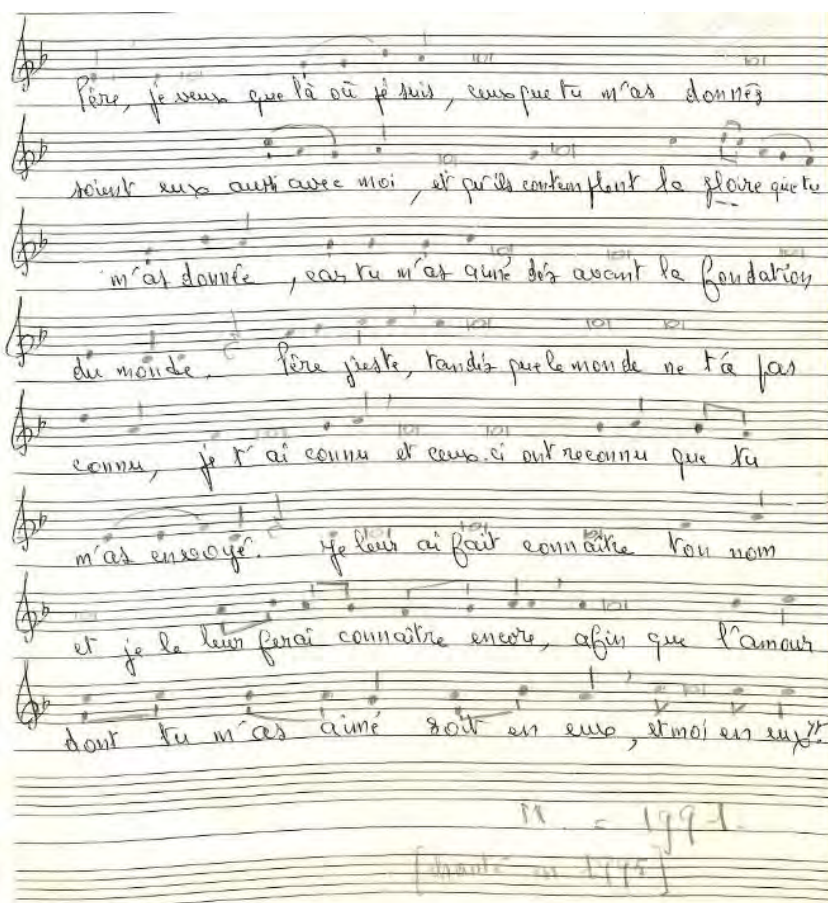 Père, je veux que là où je suis, ceux que tu m'as donnés
soient eux aussi avec moi, et qu'ils contemplent la gloire que tu
m'as donnée, car tu m'as aimé dès avant la fondation
du monde. Père juste, tandis que le monde ne t'a pas
connu, je t'ai connu et ceux-ci ont reconnu que tu
m'as envoyé. Je leur ai fait connaître ton nom
et je le leur ferai connaître encore, afin que l'amour
dont tu m'as aimé soit en eux, et moi en eux".
= 1991.
[chanté en 1995]